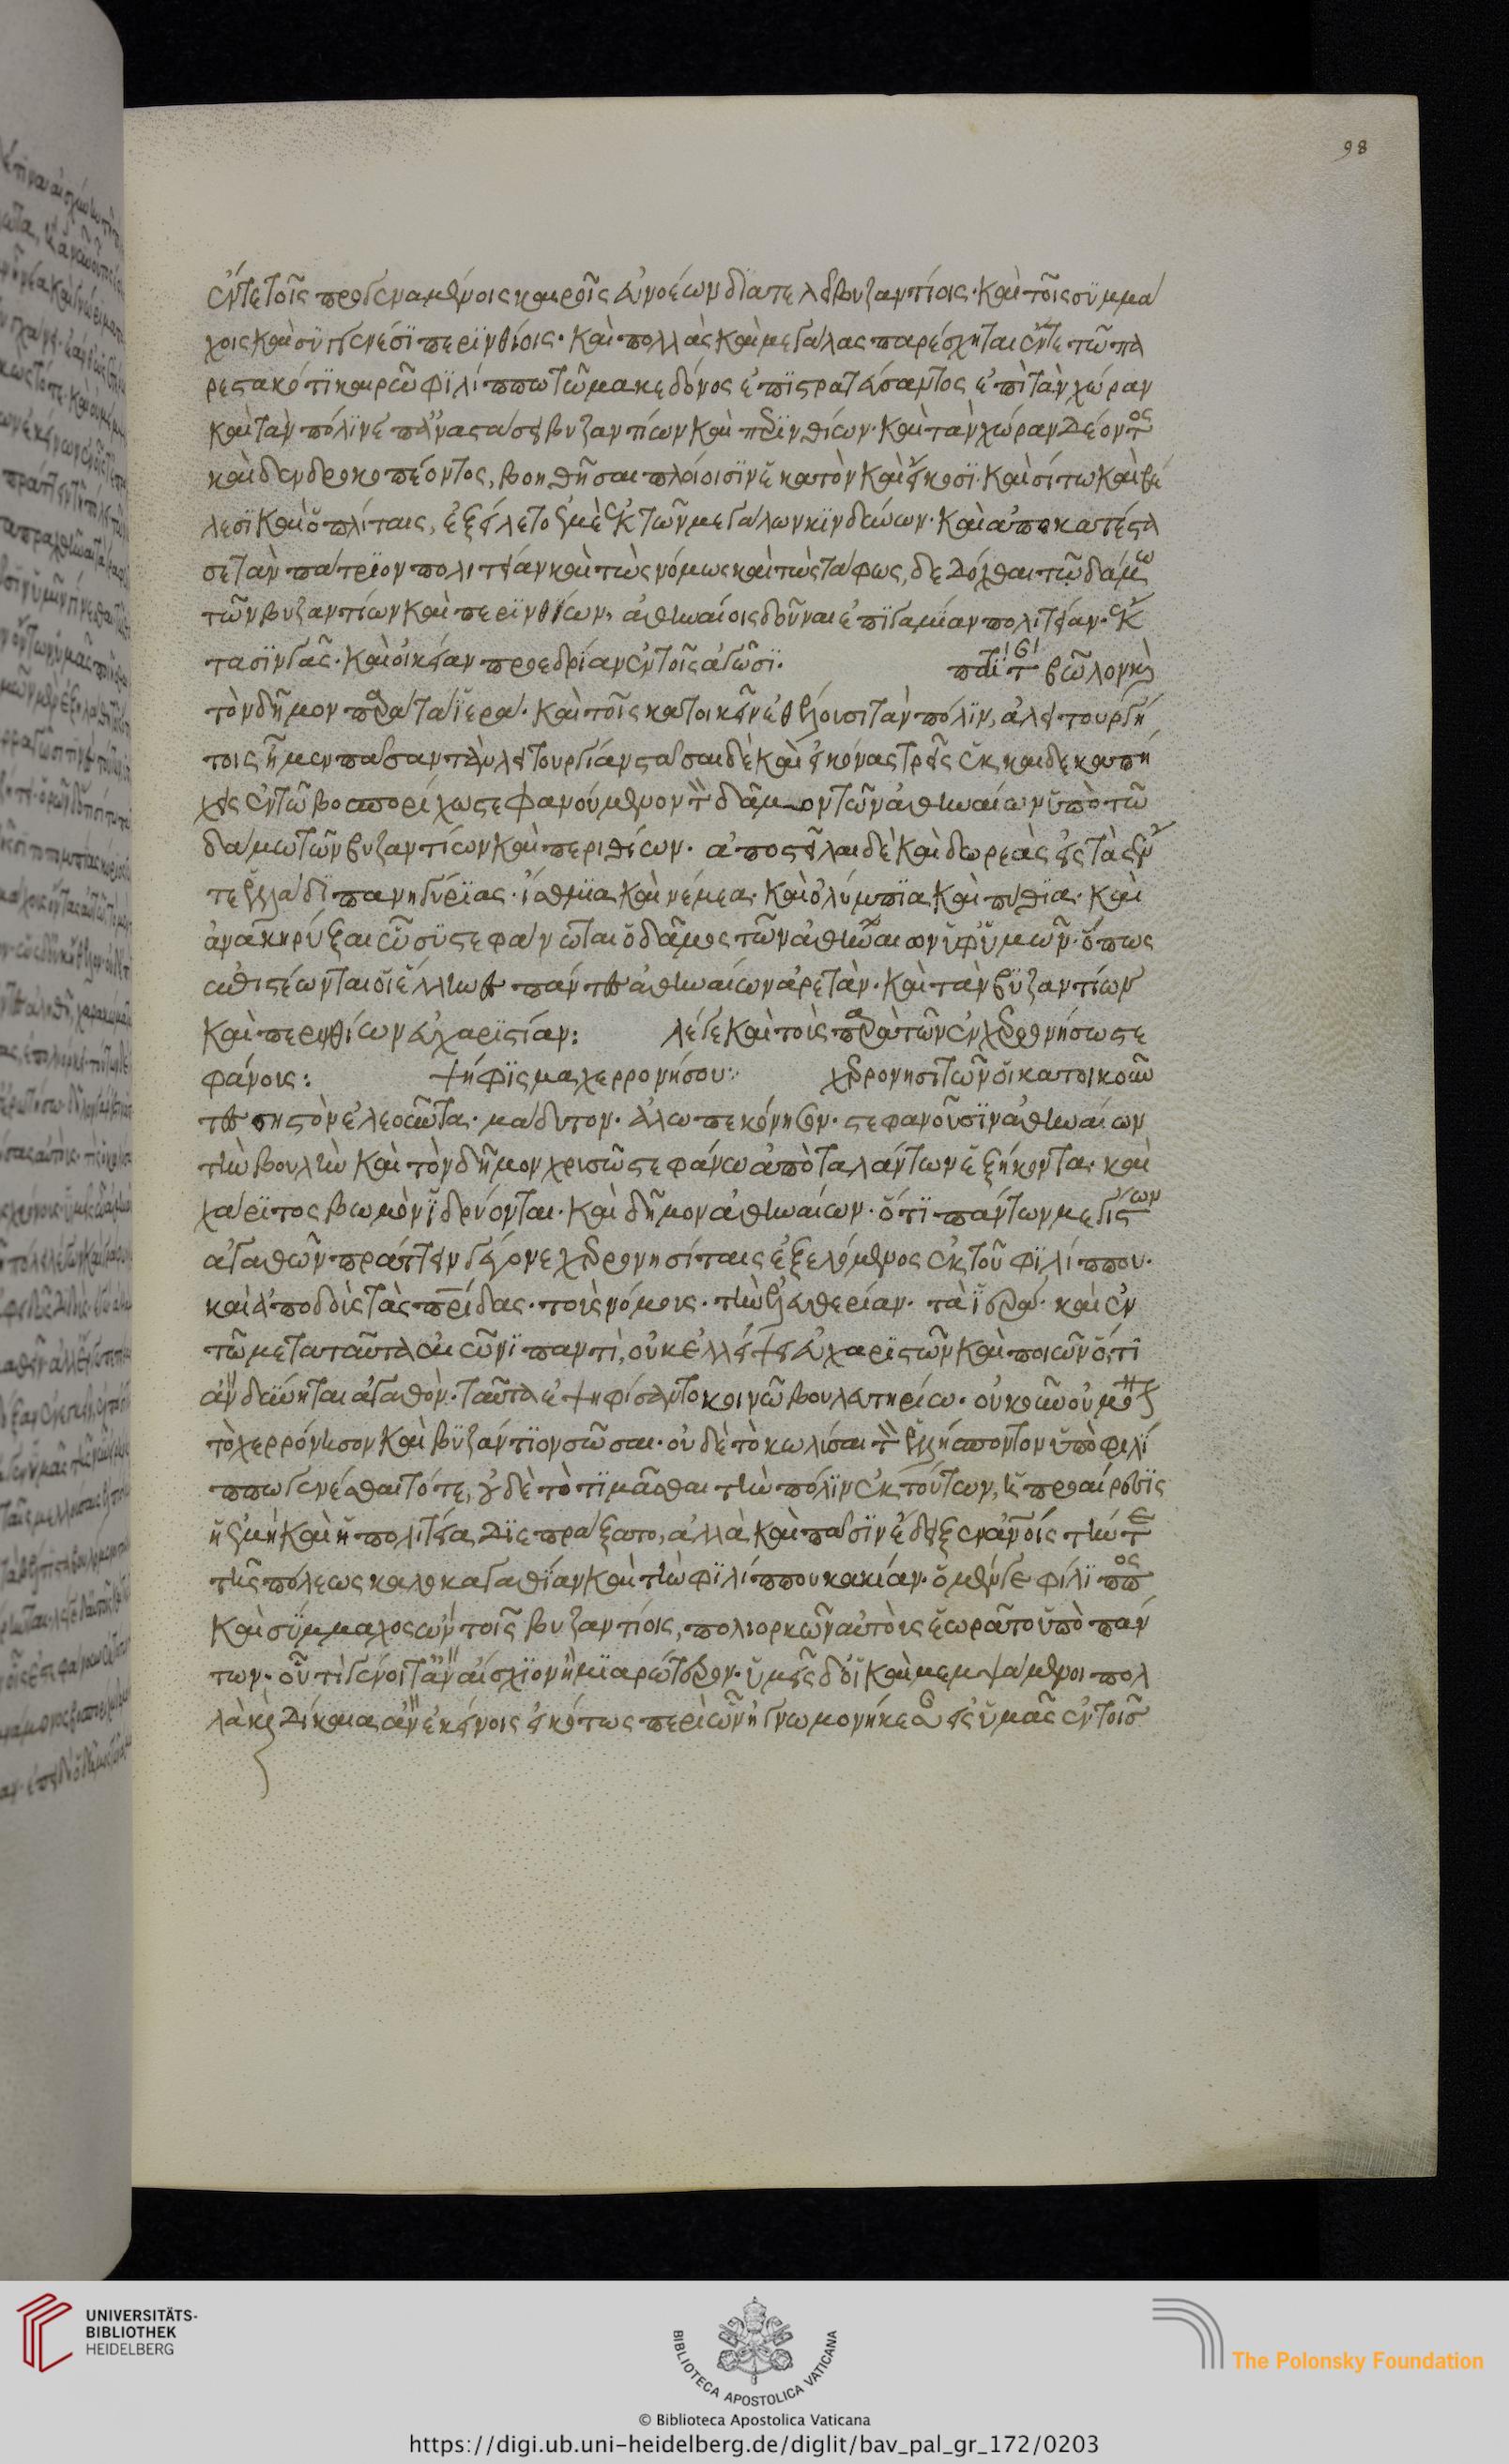 98
ἔν τε τοῖς προγεναμένοις καιροῖς εὐνοέων διατελεῖ βυζαντίοις· καὶ τοῖς συμμά
χοις καὶ συγγενέσι περινθίοις· καὶ πολλὰς καὶ μεγάλας παρέσχηται ἔν τε τῶ πα
ρεστακότι καιρῶ φιλίππω τῶ μακεδόνος ἐπιστρατεύσαντος ἐπὶ τὰν χώραν
καὶ τὰν πόλιν ἐπ' ἀναστάσει βυζαντίων καὶ περινθίων· καὶ τὰν χώραν δέοντος
καὶ δενδροκοπέοντος, βοηθῆσαι πλοίοισιν ἑκατὸν καὶ εἴκοσι· καὶ σίτω καὶ βέ
λεσι καὶ ὁπλίταις, ἐξείλετο ἡμὲ ἐκ τῶν μεγάλων κινδύνων· καὶ ἀποκατέστα
σε τὰν πάτριον πολιτείαν καὶ τὼς νόμως καὶ τὼς τάφως, δεδόχθαι τῶ δάμω
τῶν βυζαντίων καὶ περινθίων, ἀθηναίοις δοῦναι ἐπιγαμίαν πολιτείαν· ἔκ
τασιν γᾶς· καὶ οἰκείαν προεδρίαν ἐν τοῖς ἀγῶσι· ποτὶ τ βωλὸν καὶ
τὸν δῆμον παρὰ τὰ ἱερά· καὶ τοῖς κατοικεῖν ἐθέλουσι τὰν πόλιν, ἀλειτουργή
τοις ἦμεν πάσαν τὰν λειτουργίαν στάσαι δὲ καὶ εἰκόνας τρεῖς ἐκκαιδεκαπή
χεις ἐν τῶ βοσπορίχω στεφανούμενον τὸν δᾶμον τῶν ἀθηναίων ὑπὸ τῶ
δάμω τῶν βυζαντίων καὶ περιθίων· ἀποστεῖλαι δὲ καὶ δωρεὰς εἰς τὰς ἐν
τε ἑλλάδι πανηγύριας· ἴσθμια καὶ νέμεα· καὶ ὀλύμπια καὶ πύθια· καὶ
ἀνακηρύξαι οὓς ὑστεφάνωται ὁ δᾶμος τῶν ἀθηναίων ὑφ' ὑμῶν· ὅπως
ἐπιστέωνται οἱ ἕλληνες πάντες ἀθηναίων ἀρετὰν· καὶ τὰν βυζαντίων
καὶ περινθίων εὐχαριστίαν: λέγε καὶ τοὺς παρὰ τῶν ἐν χερρονήσω στε
φάνους: ψήφισμα χερρονήσου· χερρονησιτῶν οἱ κατοικοῦν
τες σηστὸν ἐλεοῦντα· μάδυτον· ἀλωπεκόνησον· στεφανοῦσιν ἀθηναίων
τὴν βουλὴν καὶ τὸν δῆμον χρυσῶ στεφάνω ἀπὸ ταλάντων ἑξήκοντα· καὶ
χάριτος βωμὸν ἱδρύονται· καὶ δῆμον ἀθηναίων· ὅτι πάντων μεγίστων
ἀγαθῶν πράττειν γέγονε χερρονησίταις ἐξελόμενος ἐκ τοῦ φιλίππου·
καὶ ἀποδοὺς τὰς πατρίδας· τοὺς νόμους· τὴν ἐλευθερίαν· τὰ ἱερά· καὶ ἐν
τῶ μετὰ ταῦτα αἰῶνι παντὶ, οὐκ ἐλλείψει εὐχαριστῶν καὶ ποιῶν ὅτι
ἂν δύνηται ἀγαθὸν· ταῦτα ἐψηφίσαντο κοινῶ βουλευτηρίω· οὐκοῦν οὐ μόνον
τὸ χερρόνησον καὶ βυζάντιον σῶσαι· οὐδὲ τὸ κωλῦσαι τὸν ἑλλήσποντον ὑπὸ φιλί
ππω γενέσθαι τότε, οὐδὲ τὸ τιμᾶσθαι τὴν πόλιν ἐκ τούτων, ἡ προαίρεσις
ἡ ἐμὴ καὶ ἡ πολιτεία διεπράξατο, ἀλλὰ καὶ πᾶσιν ἔδειξεν ἀνοίς τήν τε
τῆς πόλεως καλοκαγαθίαν καὶ τὴν φιλίππου κακίαν· ὁ μέν γε φίλιππος
καὶ σύμμαχος ὢν τοῖς βυζαντίοις, πολιορκῶν αὐτοὺς ἑωρᾶτο ὑπὸ πάν
των· οὗ τί γένοιτ' ἂν αἴσχιον ἢ μιαρώτερον· ὑμεῖς δ' οἱ καὶ μεμψάμενοι πολ
λὰ καὶ δίκαια ἂν ἐκείνοις εἰκότως περὶ ὧν ἠγνωμονήκεσαν εἰς ὑμᾶς ἐν τοῖς
UNIVERSITÄTS-
BIBLIOTHEK
HEIDELBERG
BIBLIOTECA APOSTOLICA VATICANA
The Polonsky Foundation
© Biblioteca Apostolica Vaticana
https://digi.ub.uni-heidelberg.de/diglit/bav_pal_gr_172/0203